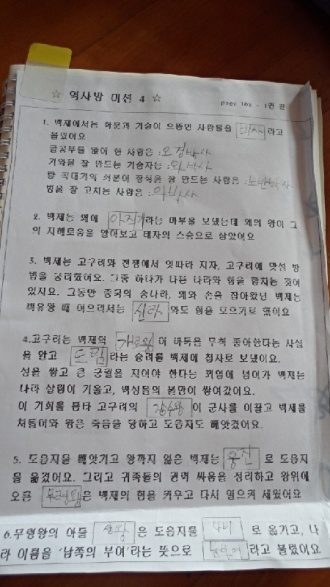 ☆ 역사방 미션 4 ☆
1. 백제에서는 학문과 기술이 으뜸인 사람들을 박사 라고
불렀어요
글공부를 많이 한 사람은 :오경박사
기와를 잘 만드는 기술자는 :와박사
탑 꼭대기의 장식을 잘 만드는 사람은 :
병을 잘 고치는 사람은 :의박사
2. 백제는 왜에 아직기 라는 마부를 보냈는데 왜의 왕이 그
의 지혜로움을 알아보고 태자의 스승으로 삼았어요
3. 백제는 고구려와 전쟁에서 잇따라 지자, 고구려에 맞설 방
법을 궁리했어요. 그중 하나가 다른 나라와 힘을 합치는 것이
었지요. 그동안 중국의 송나라, 왜와 손을 잡아왔던 백제는
비유왕 때 이르러서는 신라 와도 힘을 모으기로 했어요
4.고구려는 백제의 개로왕 이 바둑을 무척 좋아한다는 사실
을 알고 도림 라는 승려를 백제에 첩자로 보냈어요.
성을 쌓고 큰 궁궐을 지어야 한다는 꾀임에 넘어가 백제는
나라 살림이 기울고, 백성들의 불만이 쌓여갔어요.
이 기회를 틈타 고구려의 장수왕 이 군사를 이끌고 백제를
쳐들어와 왕은 죽음을 당하고 도읍지도 빼앗겼어요.
5. 도읍지를 빼앗기고 왕까지 잃은 백제는 웅진 로 도읍지
를 옮겼어요. 그리고 귀족들의 권력 싸움을 정리하고 왕위에
오른 무령왕 은 백제의 힘을 키우고 다시 일으켜 세웠어요
6.무령왕의 아들 성왕 은 도읍지를 사비 로 옮기고, 나
라 이름을 '남쪽의 부여'라는 뜻으로 남부여 라고 불렀어요